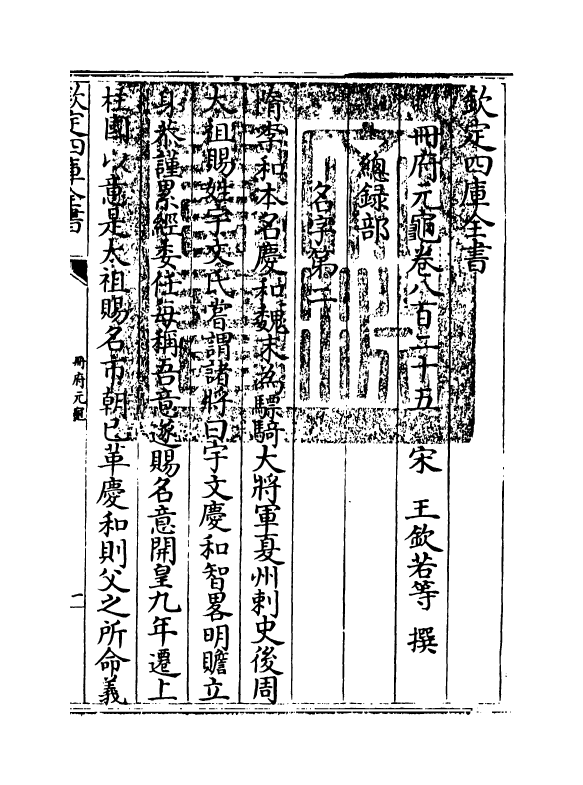 欽定四庫全書
冊府元龜卷八百二十五 宋 王欽若等 撰
總録部
名字第二
隋李和本名慶和魏末為驃騎大將軍夏州刺史後周
太祖賜姓宇文氏嘗謂諸將曰宇文慶和智畧明贍立
身恭謹累經委任每稱吾意遂賜名意開皇九年遷上
柱國以意是太祖賜名市朝已革慶和則父之所命義
欽定四庫全書
冊府元龜